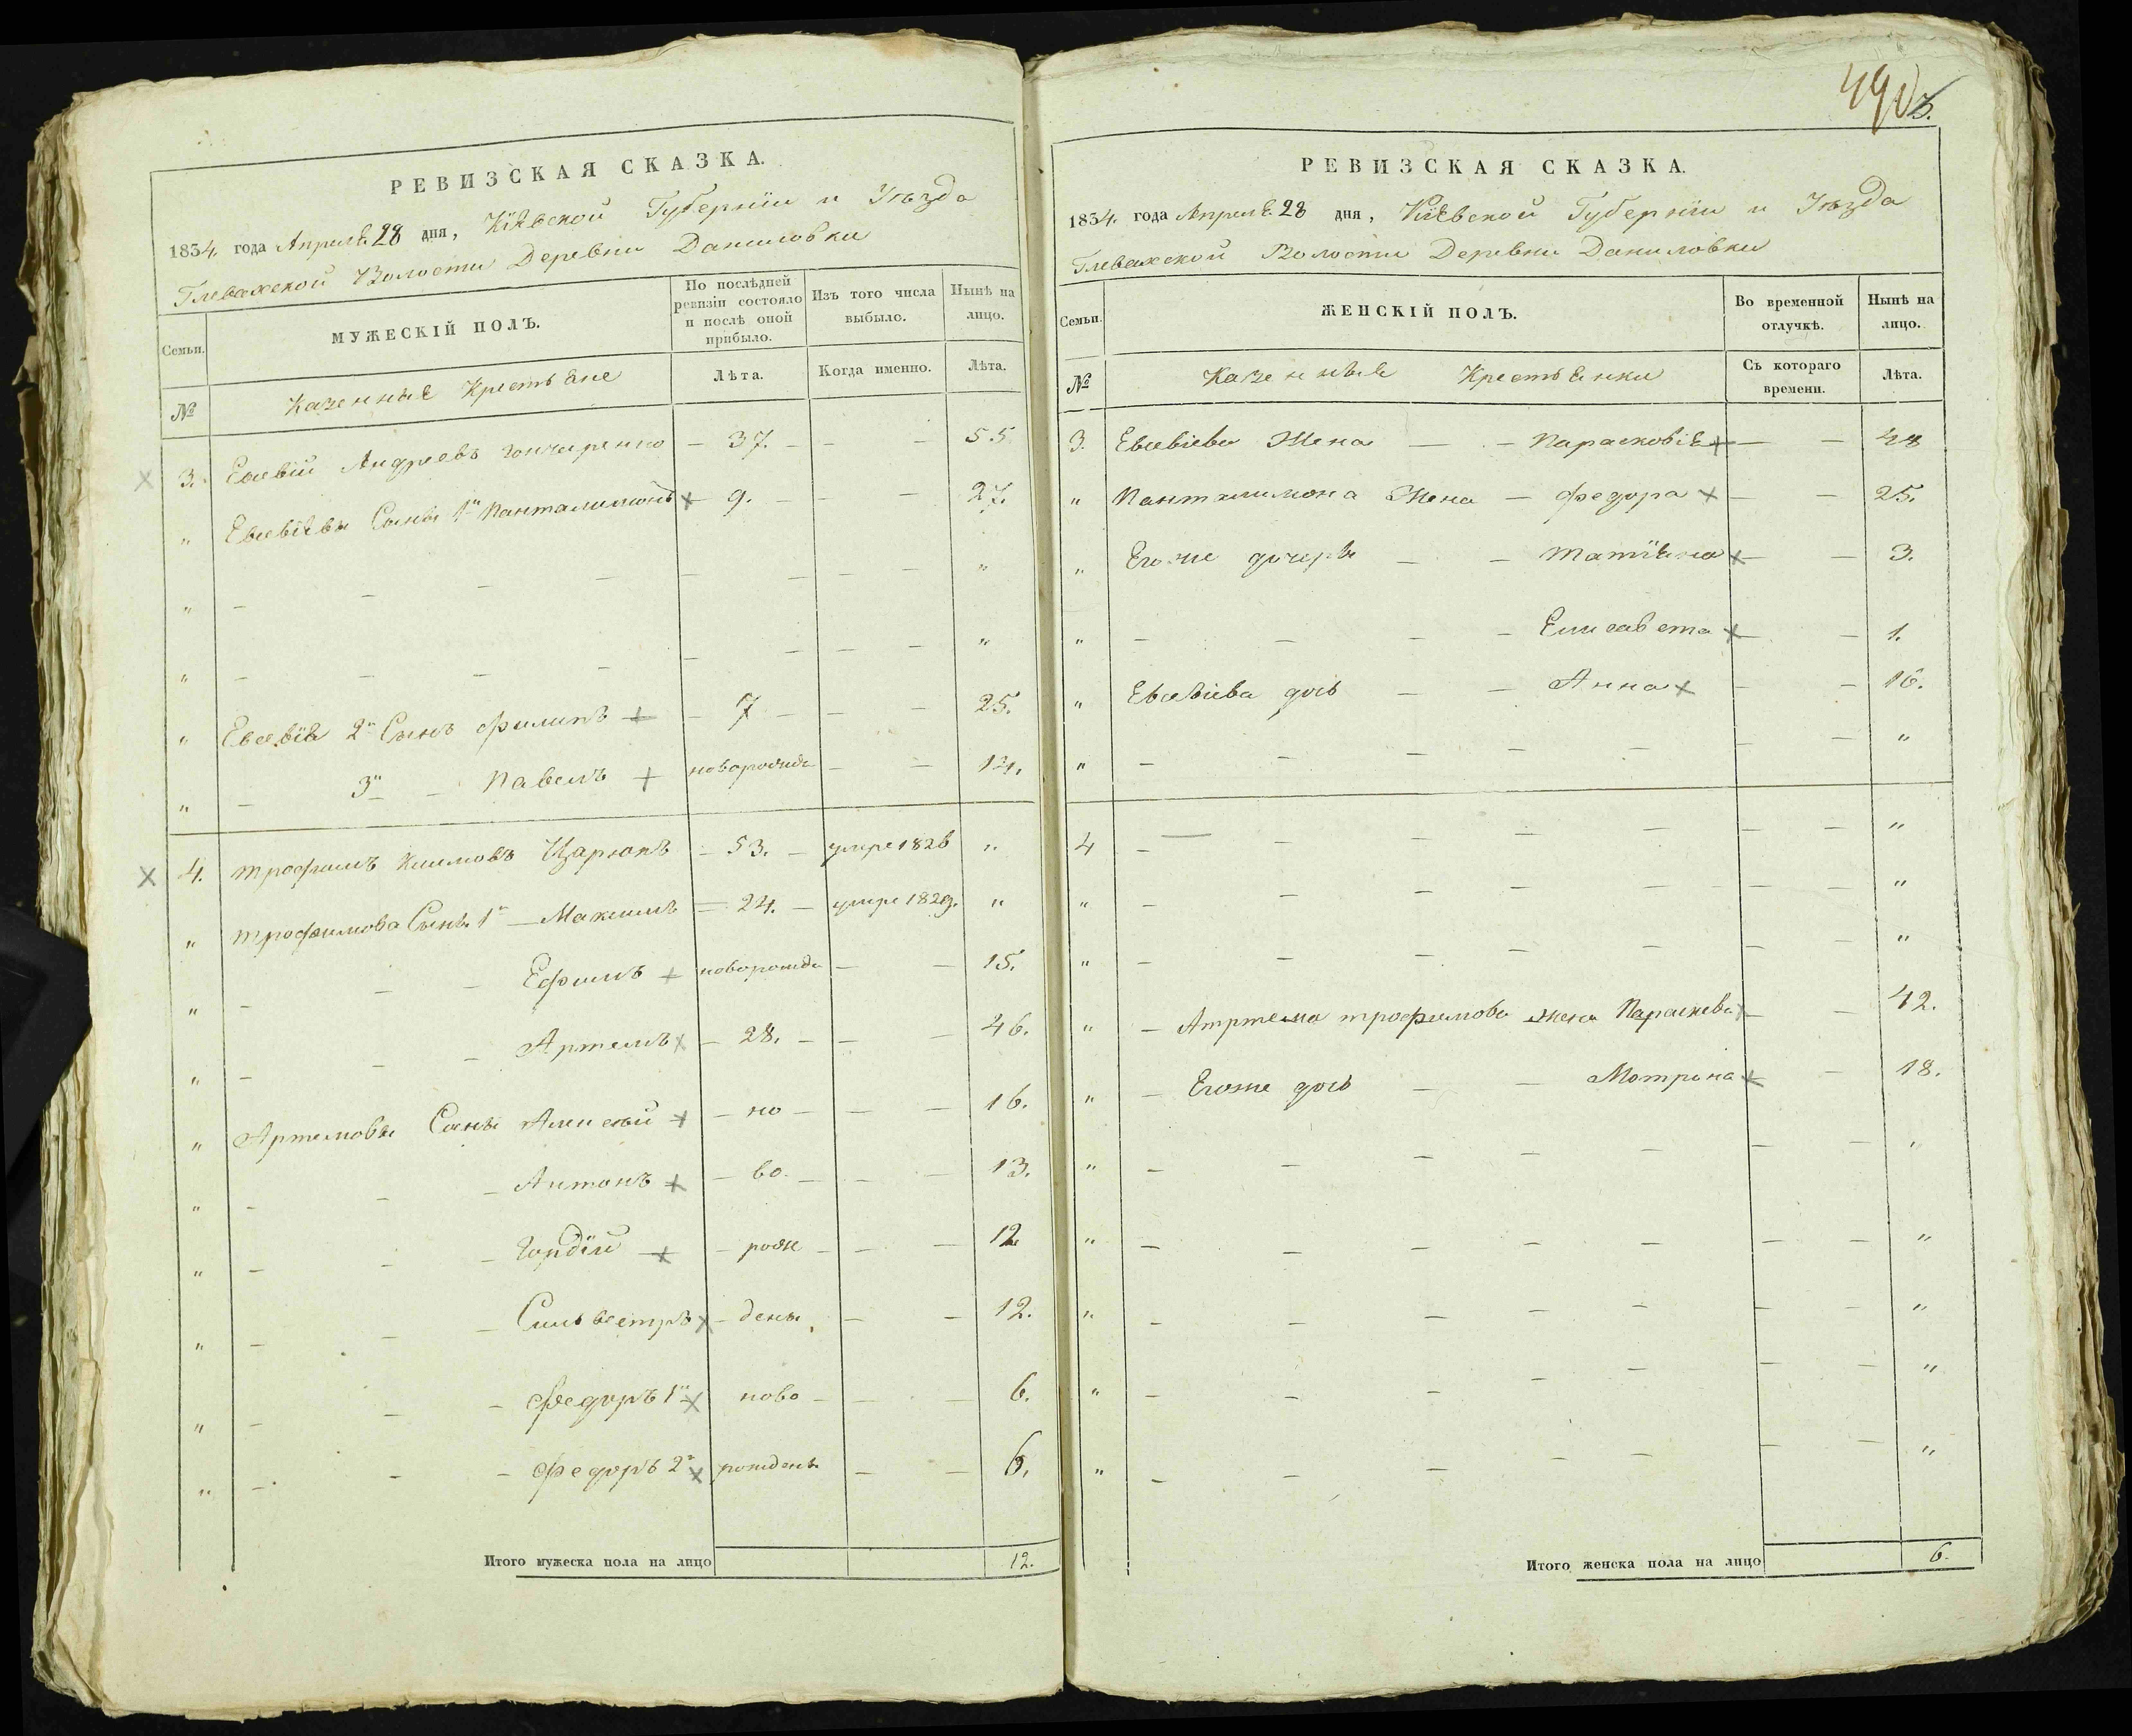 РЕВИЗСКАЯ СКАЗКА.
1834. года Апреля 28 дня, Кіевской Губерніи и Уѣзда
Глевахской Волости Деревни Даниловки
Семьи.
МУЖЕСКІЙ ПОЛЪ.
По послѣдней ревизіи состояло и послѣ оной прибыло.
Изъ того числа выбыло.
Нынѣ на лицо.
№
Казенные Крестьяне
Лѣта.
Когда именно.
Лѣта.
3. Евсевій Андреевъ Гончаренко — 37. — — — 55.
" Евсевіевы Сыны 1й Панталимонъ — 9. — — — 27.
" — — — — — — — — "
" — — — — — — — — "
" Евсевія 2й Сынъ Филипъ — 7 — — — 25.
" — 3й — Павелъ новорожде — — 14.
4. Трофимъ Климовъ — 53. — умре 1826 "
" Трофимова Сынъ 1й — Максимъ — 24. — умре 1829. "
" — — — Ефимъ новорожде — — 15.
" — — — Артемъ — 28. — — — 46.
" Артемовы Сыны Алексѣй — но — — — 16.
" — — — Антонъ — во — — — 13.
" — — — Гордій — рож — — — 12
" — — — Сильвестръ — дены — — 12.
" — — — Федоръ 1й ново — — — 6.
" — — — Федоръ 2й рождены — — 6.
Итого мужеска пола на лицо 12.
490
3.
РЕВИЗСКАЯ СКАЗКА.
1834. года Апреля 28 дня, Кіевской Губерніи и Уѣзда
Глевахской Волости Деревни Даниловки
Семьи.
ЖЕНСКІЙ ПОЛЪ.
Во временной отлучкѣ.
Нынѣ на лицо.
№
Казенныя Крестьянки
Съ котораго времени.
Лѣта.
3. Евсевіева Жена — — Парасковія — — 48
" Панталимона Жена — Федора — — 25.
" Егоже дочеры — — Татіяна — — 3.
" — — — — Елисавета — — 1.
" Евсевіева дочь — — Анна — — 16.
" — — — — — — — "
4 — — — — — — — "
" — — — — — — — "
" — — — — — — — "
" — Атртема Трофимова жена Параскева — — 42.
" — Егоже дочь — — Мотрона — 18.
" — — — — — — — "
" — — — — — — — "
" — — — — — — — "
" — — — — — — — "
" — — — — — — — "
Итого женска пола на лицо 6.